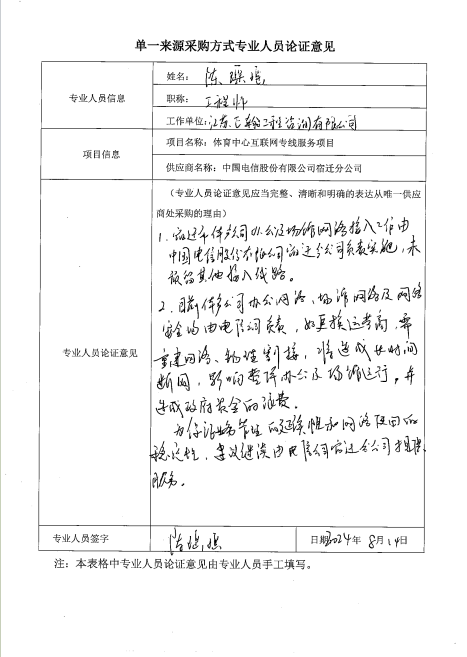 单一来源采购方式专业人员论证意见
专业人员信息
姓名：陈
职称：工程师
工作单位：江苏 工程咨询有限公司
项目信息
项目名称：体育中心互联网专线服务项目
供应商名称：中国电信股份有限公司宿迁分公司
专业人员论证意见
（专业人员论证意见应当完整、清晰和明确的表达从唯一供应
商处采购的理由）
1、宿迁市体育公司办公及场馆网络接入工作由
中国电信股份有限公司宿迁分公司负责实施，未
预留其他接入线路。
2、目前体育公司办公网络、场馆网络及网络
安全均由电信公司负责，如更换运营商，需
重建网络、物理割接，将造成长时间
断网，影响整体办公及场馆运行，并
造成政府资金的浪费。
为保证业务 的延续性和网络使用的
稳定性，建议继续由电信公司宿迁分公司提供
服务。
专业人员签字
日期2024年 8月14日
注：本表格中专业人员论证意见由专业人员手工填写。